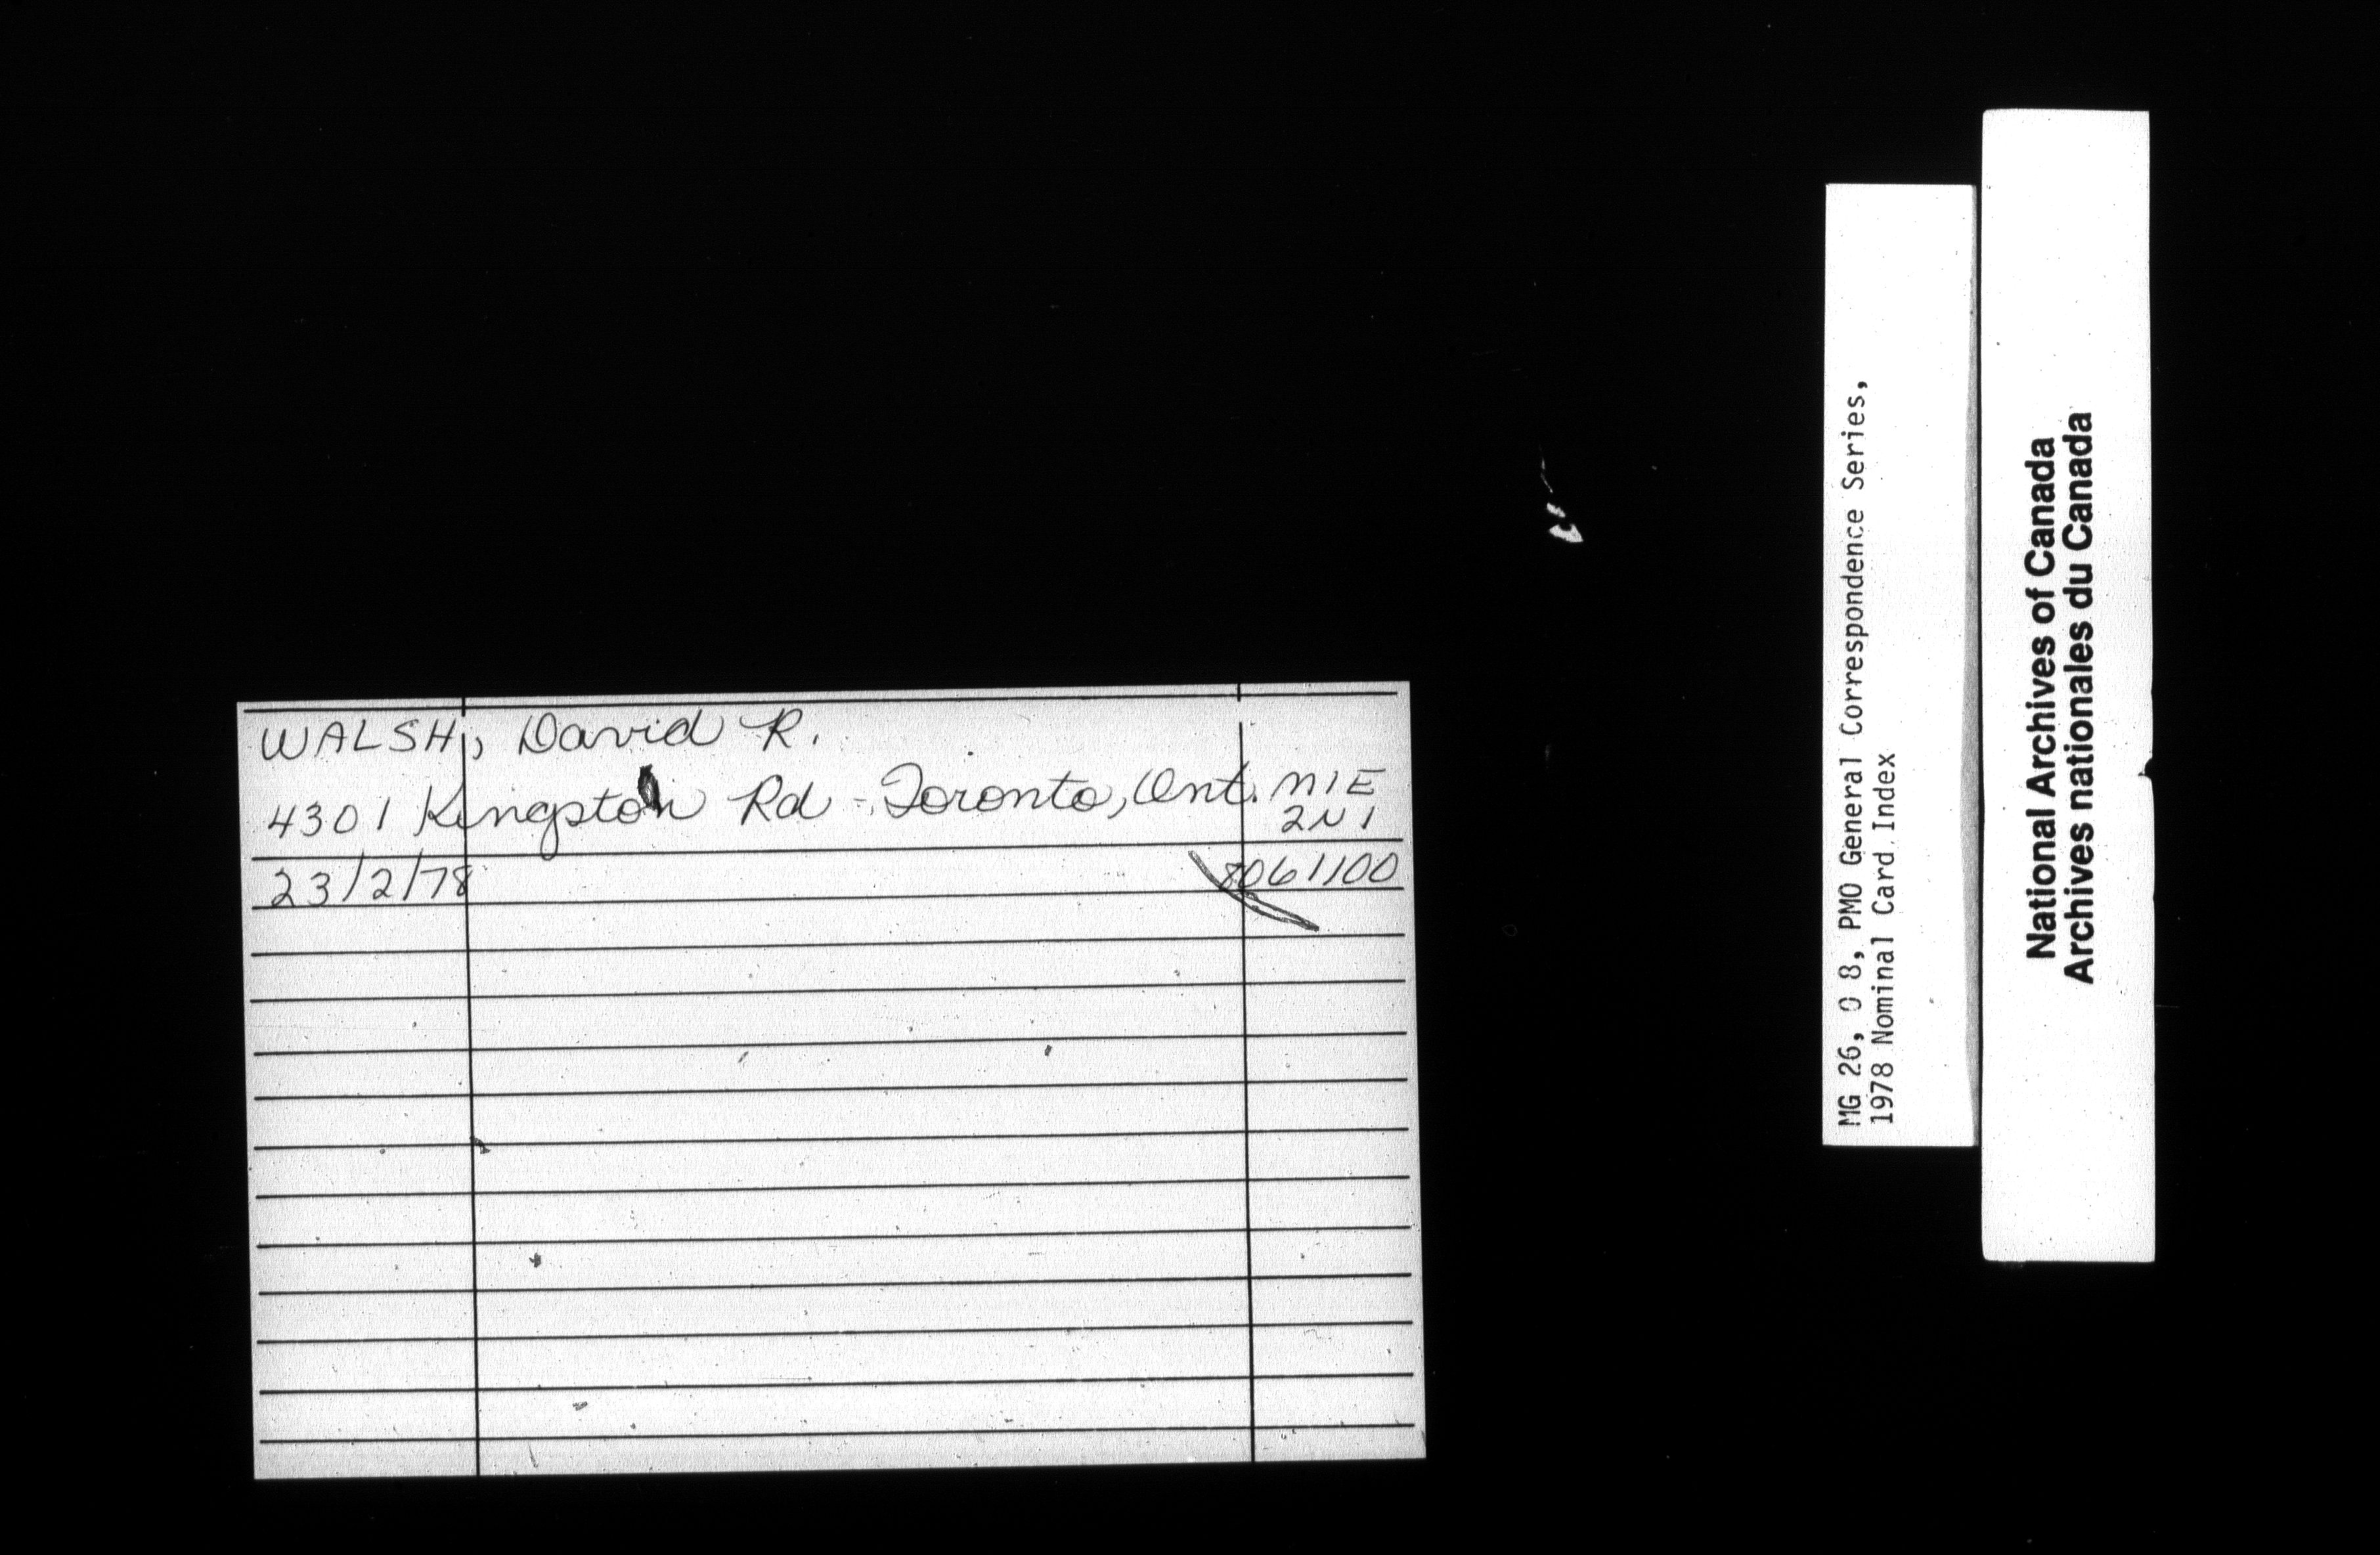 WALSH, David R.
4301 Kingston Rd - Toronto, Ont. M1E
2N1
23/2/78 8061100
MG 26, O 8, PMO General Correspondence Series,
1978 Nominal Card Index
National Archives of Canada
Archives nationales du Canada